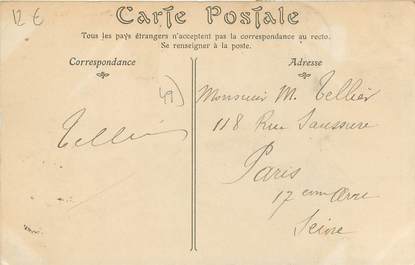 12 €
Carte Postale
Tous les pays étrangers n'acceptent pas la correspondance au recto.
Se renseigner à la poste.
Correspondance
Adresse
49)
Tellier
Monsieur M. Tellier
118 Rue Saussure
Paris
17 em Arr
Seine